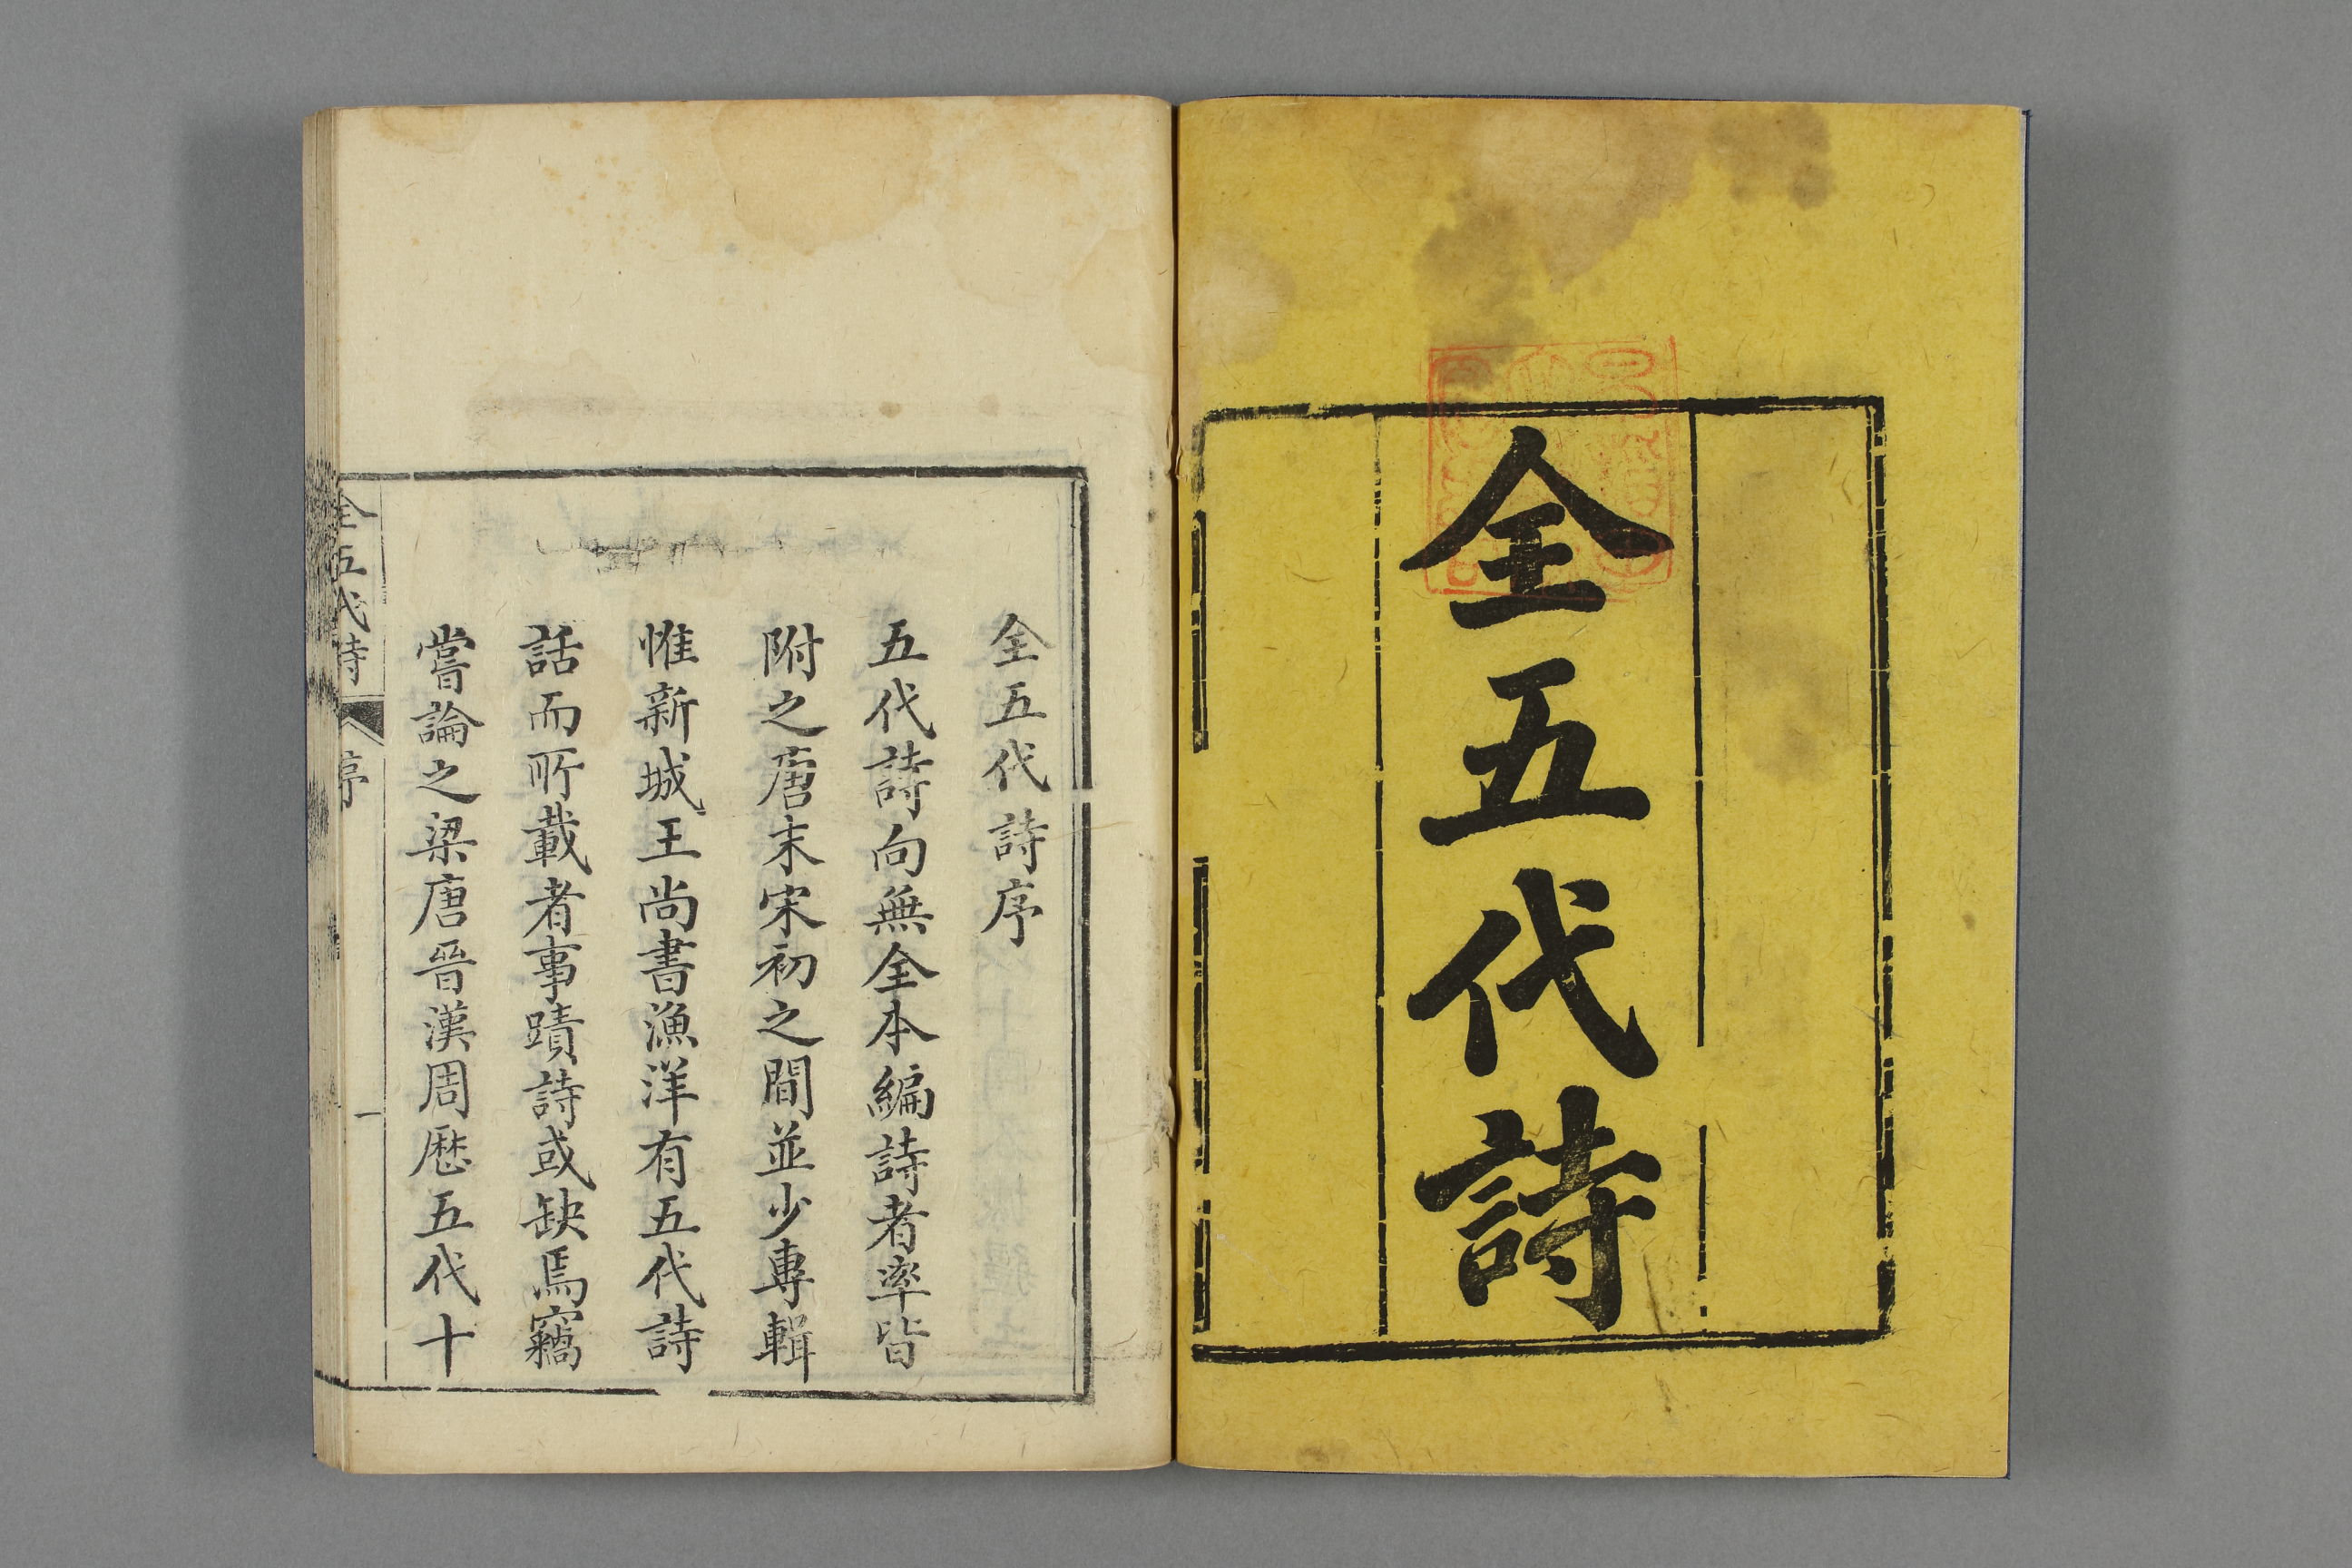 全五代詩
全五代詩序
五代詩向無全本編詩者率皆
附之唐末宋初之間並少專輯
惟新城王尚書漁洋有五代詩
話而所載者事蹟詩或缺焉竊
嘗論之梁唐晉漢周歷五代十
全五代詩 序 一